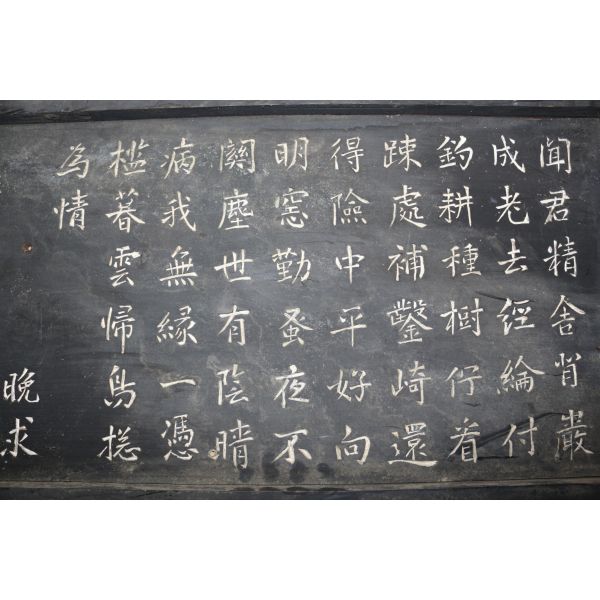 聞君精舍肖巖
成老去經綸付
釣耕種樹行看
踈處補鑿崎還
得險中平好向
明窓勤蚤夜不
關塵世有陰晴
病我無緣一憑
檻暮雲歸鳥摠
為情
晚求